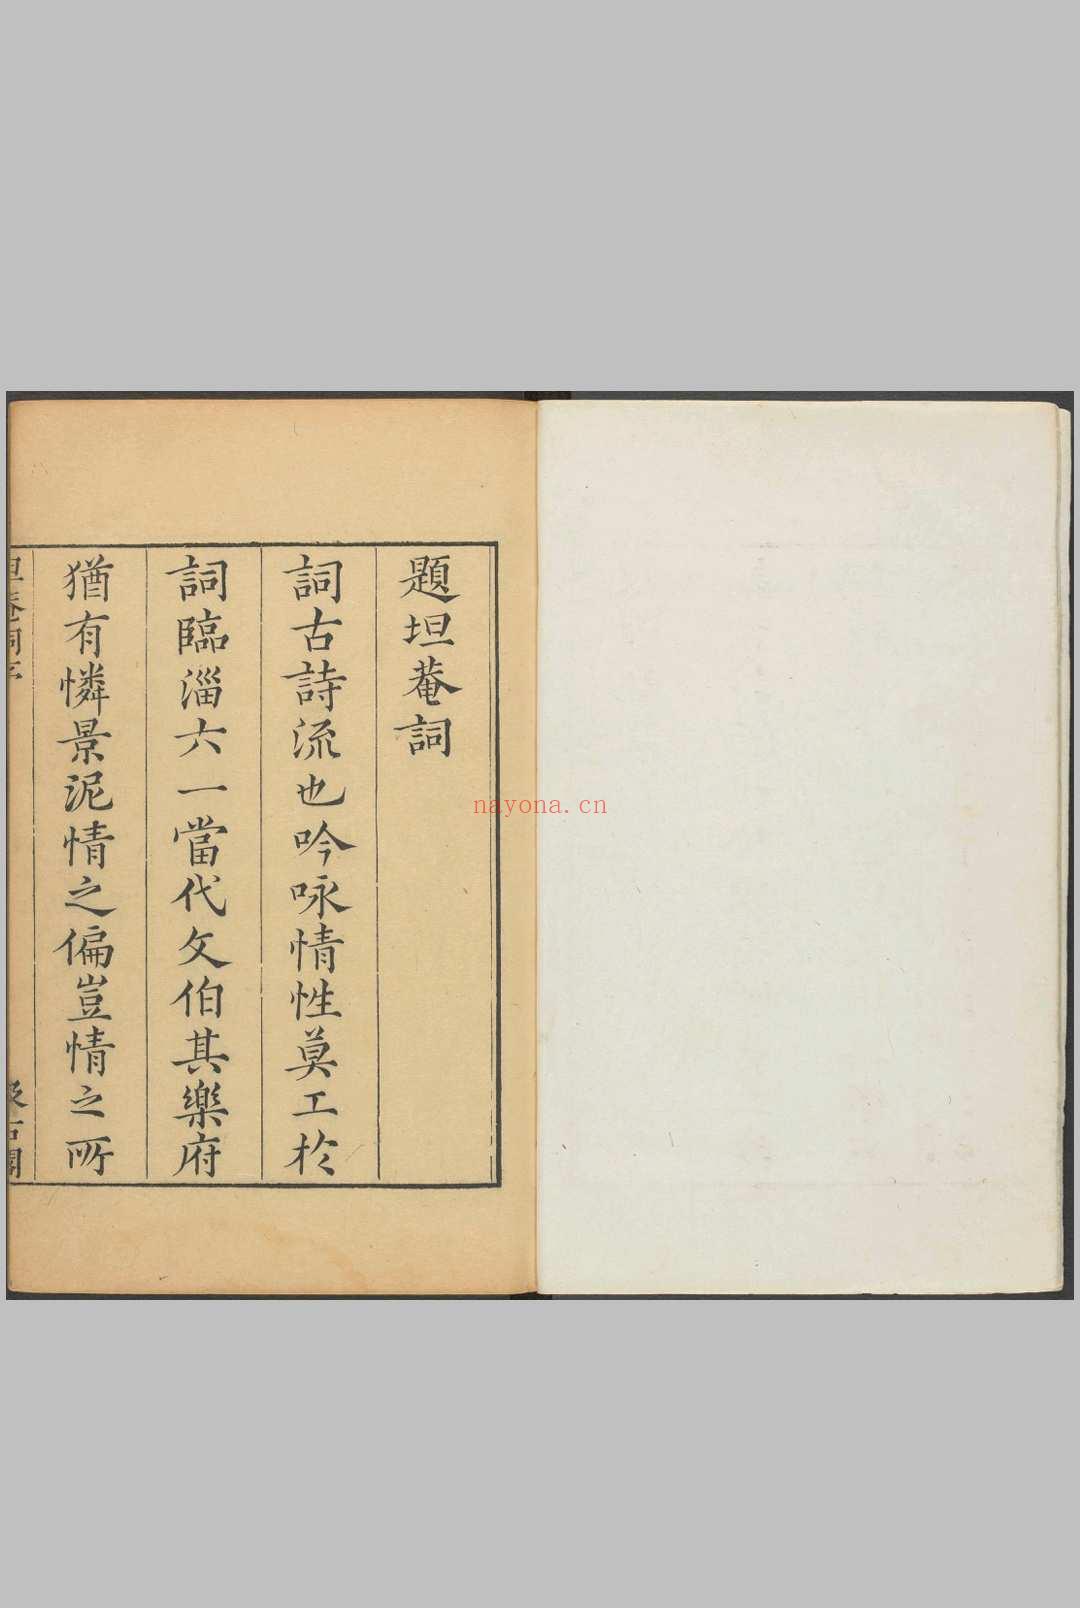 題坦菴詞
詞古詩流也吟咏情性莫工於
詞臨淄六一當代文伯其樂府
猶有憐景泥情之偏豈情之所
nayona.cn